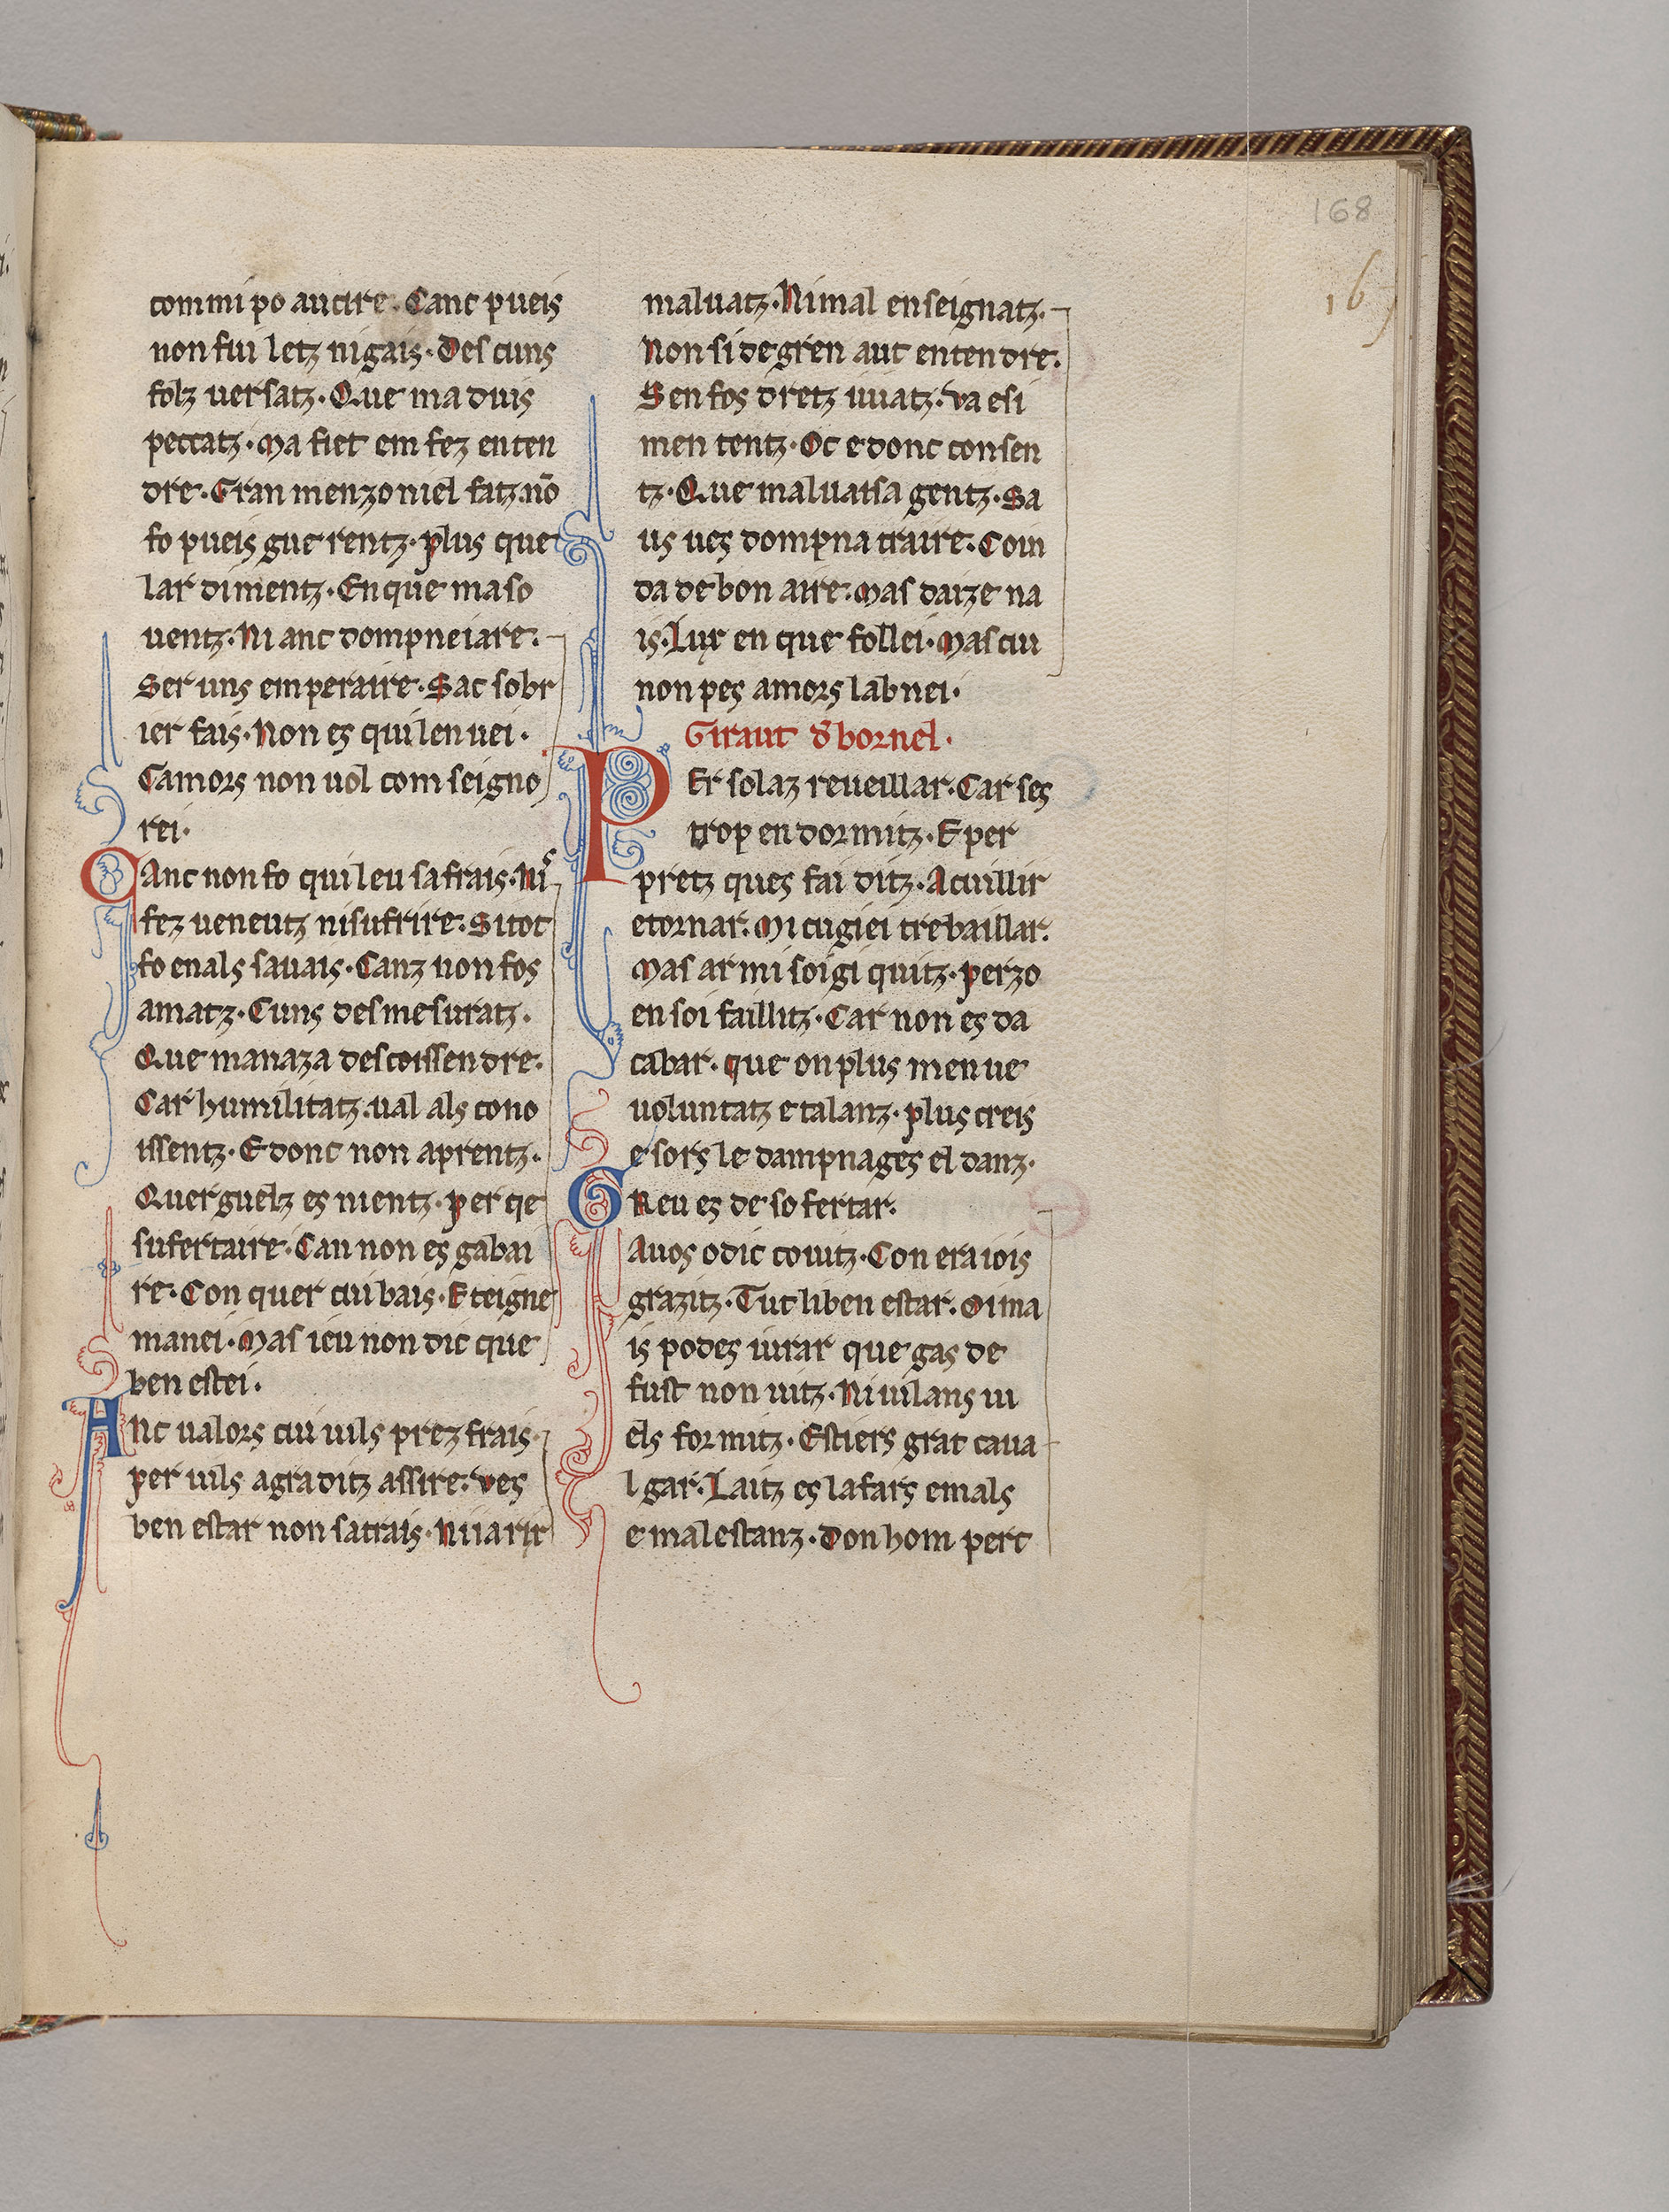 168
167
com mi po aucire. Canc pueis
non fui letz ni gais. Des cuns
folz uersatz. Que ma duis
peccatz. Ma fiet em fez enten
dre. Gran menzoniel fatz. nō
fo pueis gue rentz. plus que
lar dimentz. En que ma so
uentz. Ni anc dompneiare.
Ser uns emperaire. Sac sobr
ier fais. Non es qui len uei.
Camors non uol com seigno
rei.
Canc non fo qui leu sa frais. Ni s
fez ueneutz ni sufrire. Si tot
fo enals sauais. Canz non fos
amatz. Cuns desmesuratz.
Que manaza descoissendre.
Car humilitatz. ual als cono
issentz. E donc non aprentz.
Querguelz es nientz. per qe
sufertaire. Can non es gabai
re. Con quer cui bais. E teigne
manei. Mas ieu non dic que
ben estei.
Anc ualors cui uils prez frais.
per uils agraditz assire. ves
ben estar non satrais. Ni ia rir
maluatz. Ni mal enseignatz.
Non si degren aut entendre.
Sen fos dretz iuiatz. va esi
men tentz. Oc e donc consen
tz. Que maluaisa gentz. Sa
us ues dompna traire. Coin
da de bon aire. Mas daize na
is. Lur en que follei. Mas cui
non pes amors labnei.
Giraut d bornel.
Per solaz reueillar. Car ses
trop en dormitz. E per
pretz ques fai ditz. Acuillir
etornar. Mi cugiei trebaillar.
Mas ar mi soi gi quitz. perzo
en soi faillitz. Car non es da
cabar. que on plus men ue
uoluntatz e talanz. plus creis
e sors le dampnages el danz.
Greu ez de sofertar.
Auos o dic couitz. Con era iois
grazitz. Tut li ben estar. Oima
is podez iurar que gas de
fust non uitz. Ni uilans ui
els formitz. Estiers grat caua
l gar. Laitz es lafars e mals
e malestanz. Don hom pert